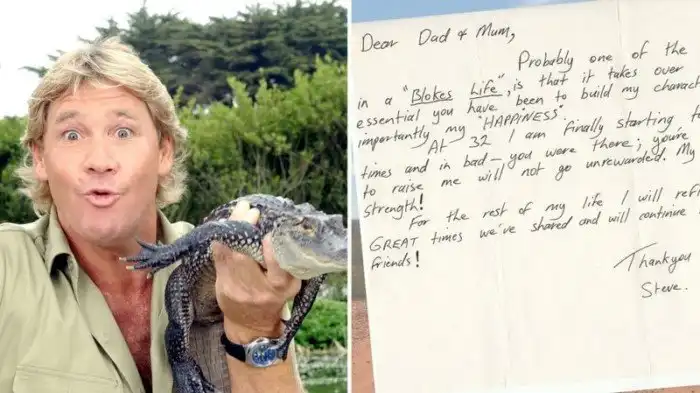 Dear Dad & Mum,
Probably one of the
in a "Blokes Life", is that it takes over
essential you have been to build my charact
importantly my "HAPPINESS".
At 32 I am finally starting to
times and in bad - you were there; you're
to raise me will not go unrewarded. My
strength!
For the rest of my life I will refl
GREAT times we've shared and will continue
friends!
Thankyou
Steve.